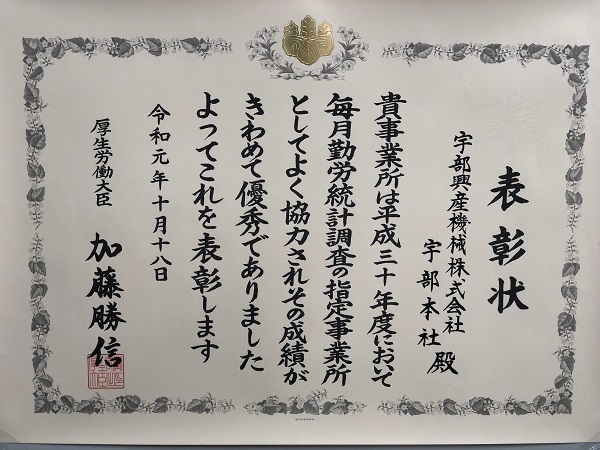 表彰状
宇部興産機械株式会社
宇部本社殿
貴事業所は平成三十年度において
毎月勤労統計調査の指定事業所
としてよく協力されその成績が
きわめて優秀でありました
よってこれを表彰します
令和元年十月十八日
厚生労働大臣
加藤勝信